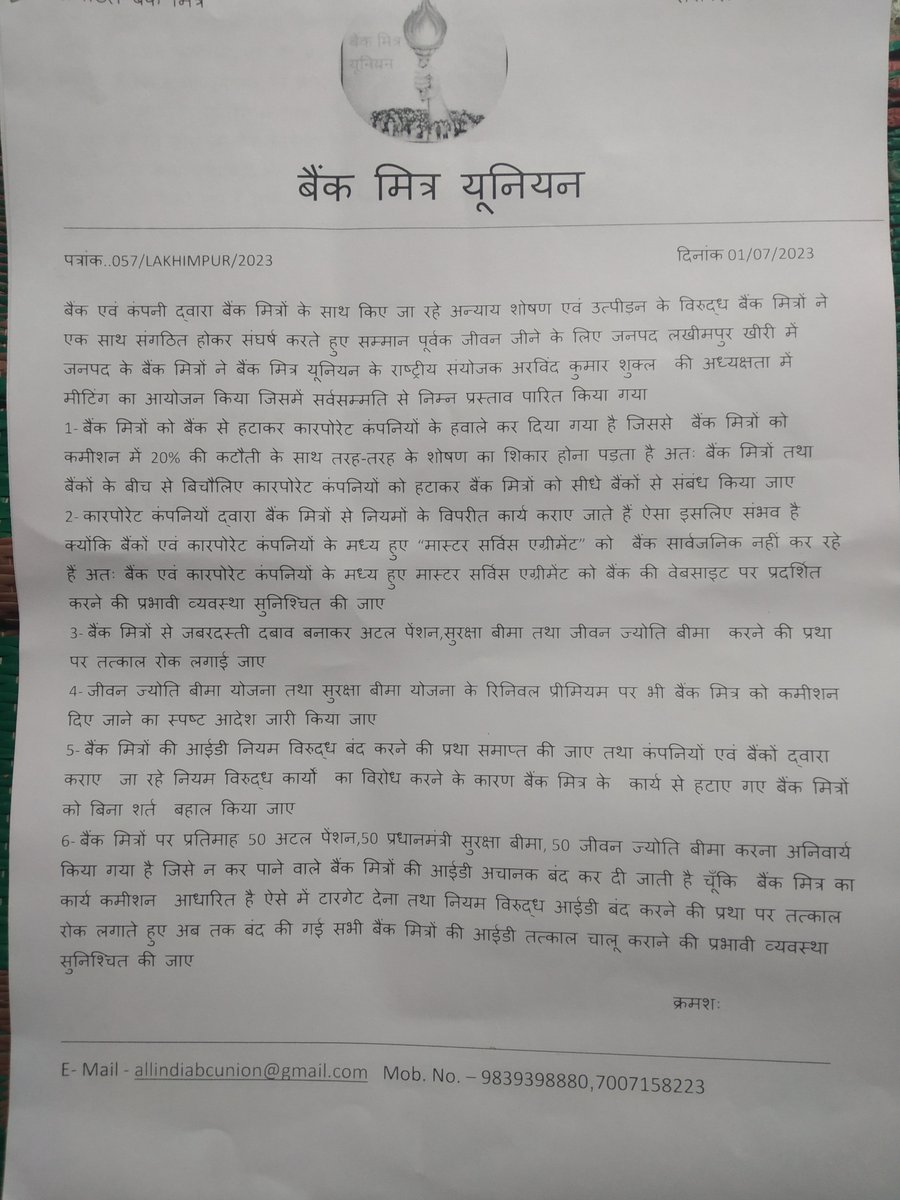 बैंक मित्र
बैंक मित्र
यूनियन
बैंक मित्र यूनियन
पत्रांक..057/LAKHIMPUR/2023 दिनांक 01/07/2023
बैंक एवं कंपनी द्वारा बैंक मित्रों के साथ किए जा रहे अन्याय शोषण एवं उत्पीड़न के विरुद्ध बैंक मित्रों ने
एक साथ संगठित होकर संघर्ष करते हुए सम्मान पूर्वक जीवन जीने के लिए जनपद लखीमपुर खीरी में
जनपद के बैंक मित्रों ने बैंक मित्र यूनियन के राष्ट्रीय संयोजक अरविंद कुमार शुक्ल की अध्यक्षता में
मीटिंग का आयोजन किया जिसमें सर्वसम्मति से निम्न प्रस्ताव पारित किया गया
1- बैंक मित्रों को बैंक से हटाकर कारपोरेट कंपनियों के हवाले कर दिया गया है जिससे बैंक मित्रों को
कमीशन में 20% की कटौती के साथ तरह-तरह के शोषण का शिकार होना पड़ता है अतः बैंक मित्रों तथा
बैंकों के बीच से बिचौलिए कारपोरेट कंपनियों को हटाकर बैंक मित्रों को सीधे बैंकों से संबंध किया जाए
2- कारपोरेट कंपनियों द्वारा बैंक मित्रों से नियमों के विपरीत कार्य कराए जाते हैं ऐसा इसलिए संभव है
क्योंकि बैंकों एवं कारपोरेट कंपनियों के मध्य हुए “मास्टर सर्विस एग्रीमेंट” को बैंक सार्वजनिक नहीं कर रहे
हैं अतः बैंक एवं कारपोरेट कंपनियों के मध्य हुए मास्टर सर्विस एग्रीमेंट को बैंक की वेबसाइट पर प्रदर्शित
करने की प्रभावी व्यवस्था सुनिश्चित की जाए
3- बैंक मित्रों से जबरदस्ती दबाव बनाकर अटल पेंशन,सुरक्षा बीमा तथा जीवन ज्योति बीमा करने की प्रथा
पर तत्काल रोक लगाई जाए
4- जीवन ज्योति बीमा योजना तथा सुरक्षा बीमा योजना के रिनिवल प्रीमियम पर भी बैंक मित्र को कमीशन
दिए जाने का स्पष्ट आदेश जारी किया जाए
5- बैंक मित्रों की आईडी नियम विरुद्ध बंद करने की प्रथा समाप्त की जाए तथा कंपनियों एवं बैंकों द्वारा
कराए जा रहे नियम विरुद्ध कार्यों का विरोध करने के कारण बैंक मित्र के कार्य से हटाए गए बैंक मित्रों
को बिना शर्त बहाल किया जाए
6- बैंक मित्रों पर प्रतिमाह 50 अटल पेंशन,50 प्रधानमंत्री सुरक्षा बीमा, 50 जीवन ज्योति बीमा करना अनिवार्य
किया गया है जिसे न कर पाने वाले बैंक मित्रों की आईडी अचानक बंद कर दी जाती है चूँकि बैंक मित्र का
कार्य कमीशन आधारित है ऐसे में टारगेट देना तथा नियम विरुद्ध आईडी बंद करने की प्रथा पर तत्काल
रोक लगाते हुए अब तक बंद की गई सभी बैंक मित्रों की आईडी तत्काल चालू कराने की प्रभावी व्यवस्था
सुनिश्चित की जाए
क्रमशः
E- Mail - allindiabcunion@gmail.com Mob. No. – 9839398880,7007158223